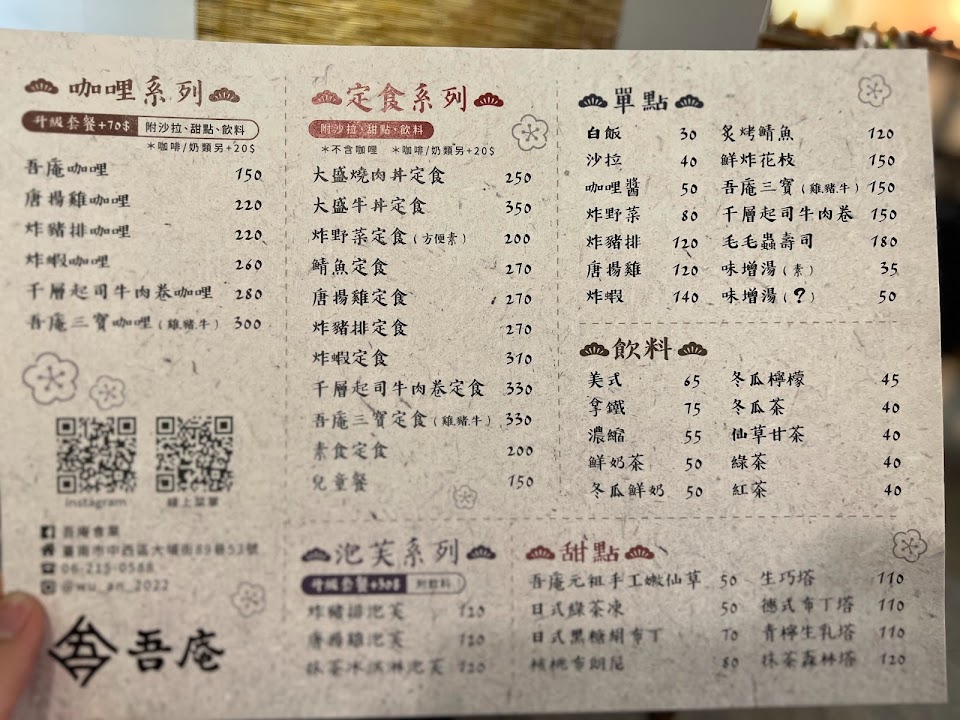 咖哩系列
升級套餐+70$ 附沙拉、甜點、飲料
*咖啡/奶類另+20$
吾庵咖哩 150
唐揚雞咖哩 220
炸豬排咖哩 220
炸蝦咖哩 260
千層起司牛肉卷咖哩 280
吾庵三寶咖哩(雞.豬.牛) 300
Instagram 線上菜單
吾庵食業
臺南市中西區大埔街89巷53號
06-215-0588
@wu_an_2022
吾庵
定食系列
附沙拉、甜點、飲料
*不含咖哩 *咖啡/奶類另+20$
大盛燒肉丼定食 250
大盛牛丼定食 350
炸野菜定食(方便素) 200
鯖魚定食 270
唐揚雞定食 270
炸豬排定食 270
炸蝦定食 310
千層起司牛肉卷定食 330
吾庵三寶定食(雞.豬.牛) 330
素食定食 200
兒童餐 150
單點
白飯 30
沙拉 40
咖哩醬 50
炸野菜 80
炸豬排 120
唐揚雞 120
炸蝦 140
炙烤鯖魚 120
鮮炸花枝 150
吾庵三寶(雞.豬.牛) 150
千層起司牛肉卷 150
毛毛蟲壽司 180
味增湯(素) 35
味增湯(?) 50
飲料
美式 65
拿鐵 75
濃縮 55
鮮奶茶 50
冬瓜鮮奶 50
冬瓜檸檬 45
冬瓜茶 40
仙草甘茶 40
綠茶 40
紅茶 40
泡芙系列
升級套餐+50$ 附飲料
炸豬排泡芙 120
唐揚雞泡芙 120
抹茶冰淇淋泡芙 120
甜點
吾庵元祖手工嫩仙草 50
日式綠茶凍 50
日式黑糖絹布丁 70
核桃布朗尼 80
生巧塔 110
德式布丁塔 110
青檸生乳塔 110
抹茶森林塔 120